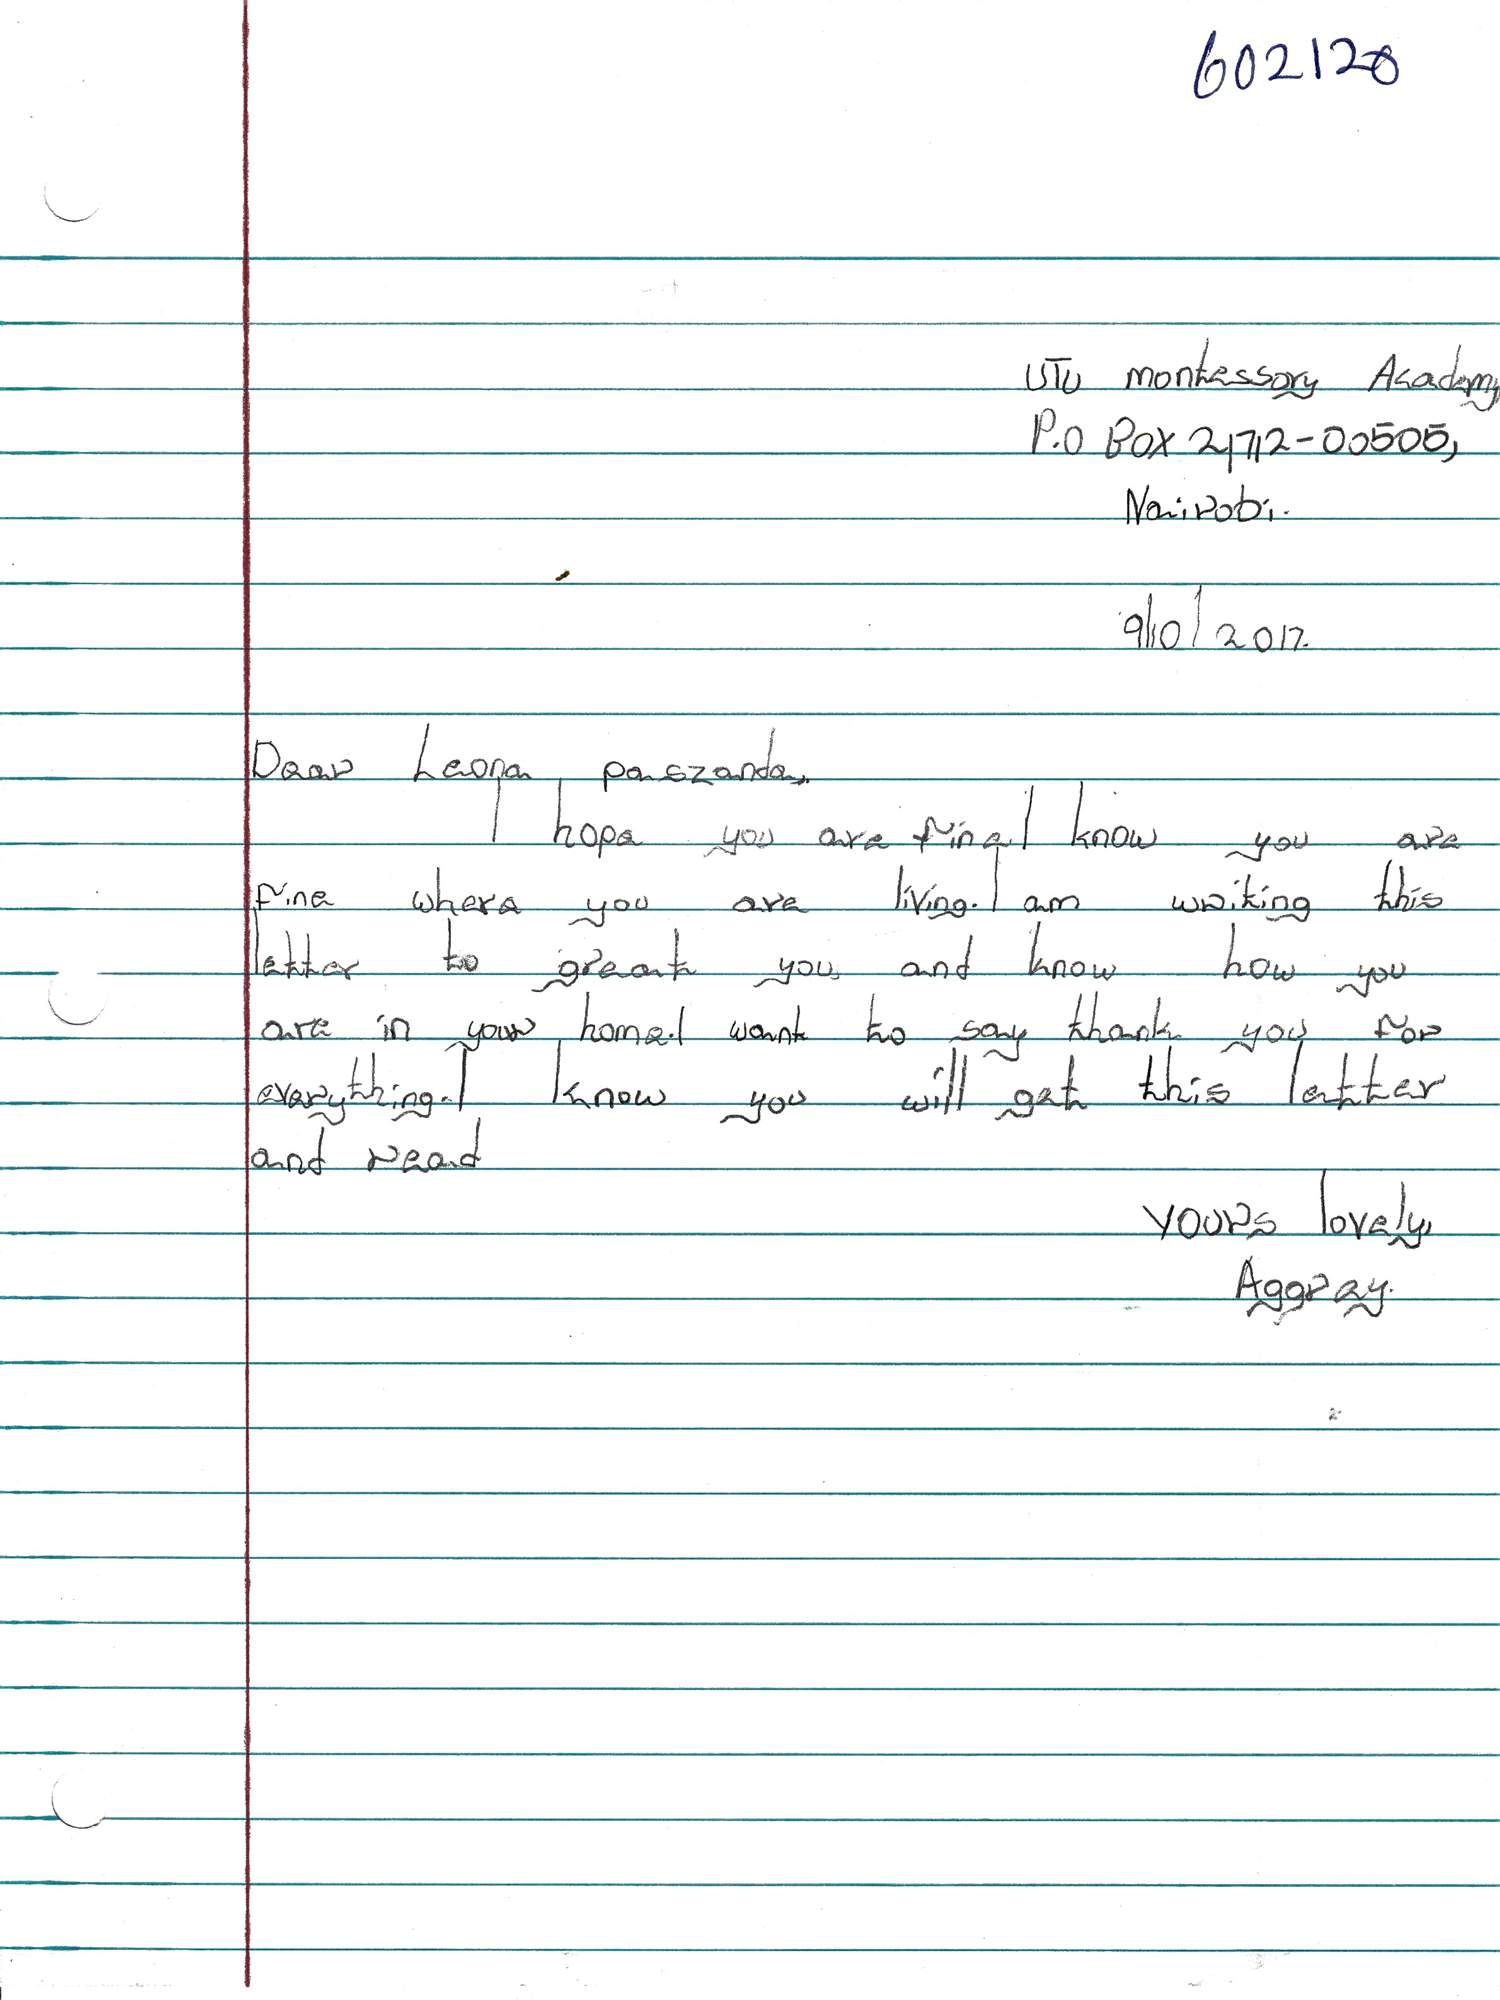 602120
UTU montessory Academy,
P.O Box 21712-00505,
Nairobi.
9/10/2017.
Dear Leona paszanda,
I hope you are fine.I know you are
fine where you are living.I am writing this
letter to greeat you and know how you
are in your home.I want to say thank you for
everything.I know you will get this letter
and read
Yours lovely,
Aggray.